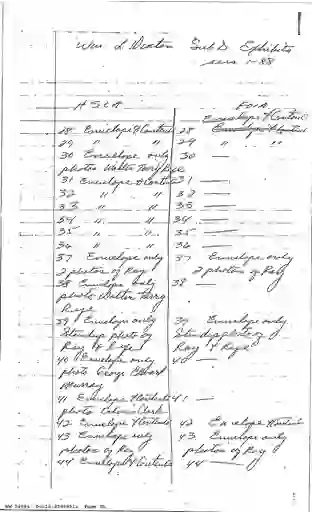 Wm L Sub D Exhibits
1-88
HSCA FOIA
Envelope & Contents
28 Envelope & Contents 28 Envelope & Contents
29 " " 29 " "
30 Envelope only 30 —
photos Walter
31 Envelope & Contents 31 —
32 " " 32 —
33 " " 33 —
34 " " 34 —
35 " " 35 —
36 " " 36 —
37 Envelope only 37 Envelope only
2 photos of Ray 2 photos of Ray
38 Envelope only 38
photo Walter Terry
Rife
39 Envelope only 39 Envelope only
Standup photo of Standup photo of
Ray & Rife Ray & Rife
40 Envelope only 40 —
photo George
Murray
41 Envelope & Contents 41 —
photo Clark
42 Envelope & Contents 42 Envelope & Contents
43 Envelope only 43 Envelope only
photos of Ray photos of Ray
44 Envelope & Contents 44 —